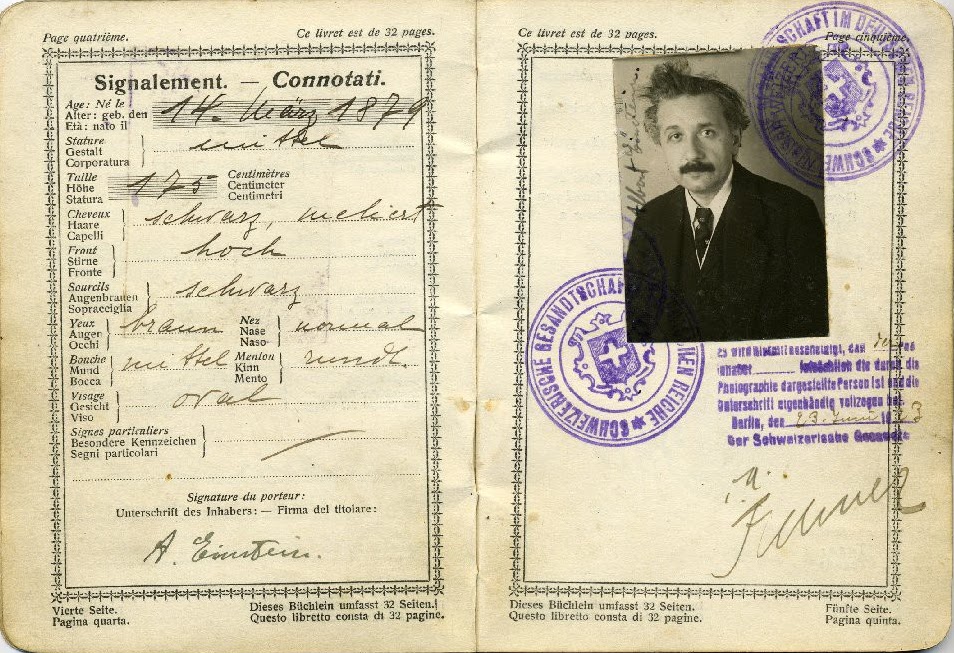 Page quatrième.
Ce livret est de 32 pages.
Signalement. — Connotati.
Age: Né le
Alter: geb. den
Età: nato il
14. März 1879
Stature
Gestalt
Corporatura
mittel
Taille
Höhe
Statura
175
Centimètres
Centimeter
Centimetri
Cheveux
Haare
Capelli
schwarz, meliert
Front
Stirne
Fronte
hoch
Sourcils
Augenbrauen
Sopracciglia
schwarz
Yeux
Augen
Occhi
braun
Nez
Nase
Naso
normal
Bouche
Mund
Bocca
mittel
Menton
Kinn
Mento
rund.
Visage
Gesicht
Viso
oval
Signes particuliers
Besondere Kennzeichen
Segni particolari
Signature du porteur:
Unterschrift des Inhabers: — Firma del titolare:
A. Einstein.
Vierte Seite.
Pagina quarta.
Dieses Büchlein umfasst 32 Seiten.
Questo libretto consta di 32 pagine.
Ce livret est de 32 pages.
Page cinquième.
SCHWEIZERISCHE GESANDTSCHAFT IM DEUTSCHEN REICHE
Albert Einstein.
SCHWEIZERISCHE GESANDTSCHAFT IM DEUTSCHEN REICHE
Es wird hiermit bescheinigt, dass der
Inhaber die durch die
Photographie dargestellte Person ist und die
Unterschrift eigenhändig vollzogen hat.
Berlin, den 23. Juni 1923
Der Schweizerische Gesandte
i. A.
Dieses Büchlein umfasst 32 Seiten.
Questo libretto consta di 32 pagine.
Fünfte Seite.
Pagina quinta.